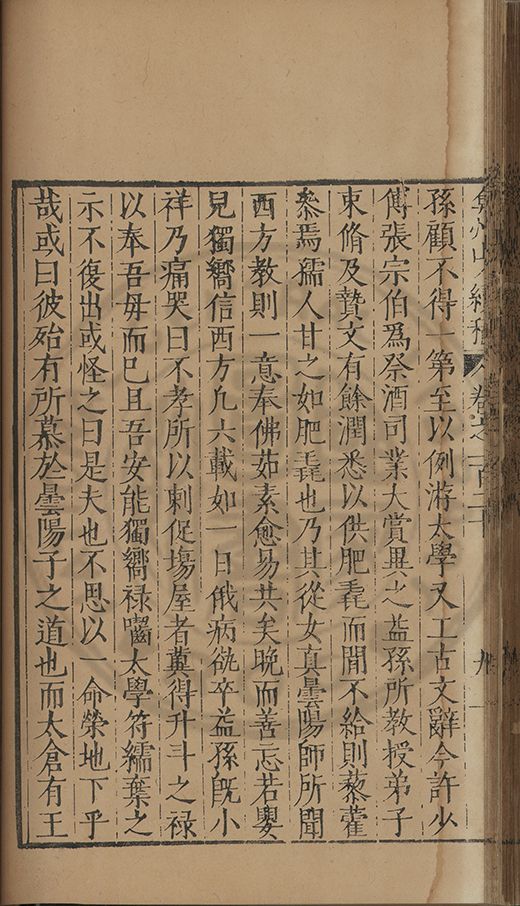 弇州山人續稿 卷之一百二十 九
孫顧不得一第至以例游太學又工古文辭今許少
傅張宗伯爲祭酒司業大賞異之益孫所教授弟子
束脩及贄文有餘潤悉以供肥毳而間不給則藜藿
叅焉孺人甘之如肥毳也乃其從女真曇陽師所聞
西方教則一意奉佛茹素愈易共矣晚而善忘若嬰
兒獨嚮信西方凢六載如一日俄病欬卒益孫旣小
祥乃痛哭曰不孝所以刺促塲屋者冀得升斗之禄
以奉吾毋而巳且吾安能獨嚮禄囓太學符繻棄之
示不復出或怪之曰是夫也不思以一命榮地下乎
哉或曰彼殆有所慕於曇陽子之道也而太倉有王